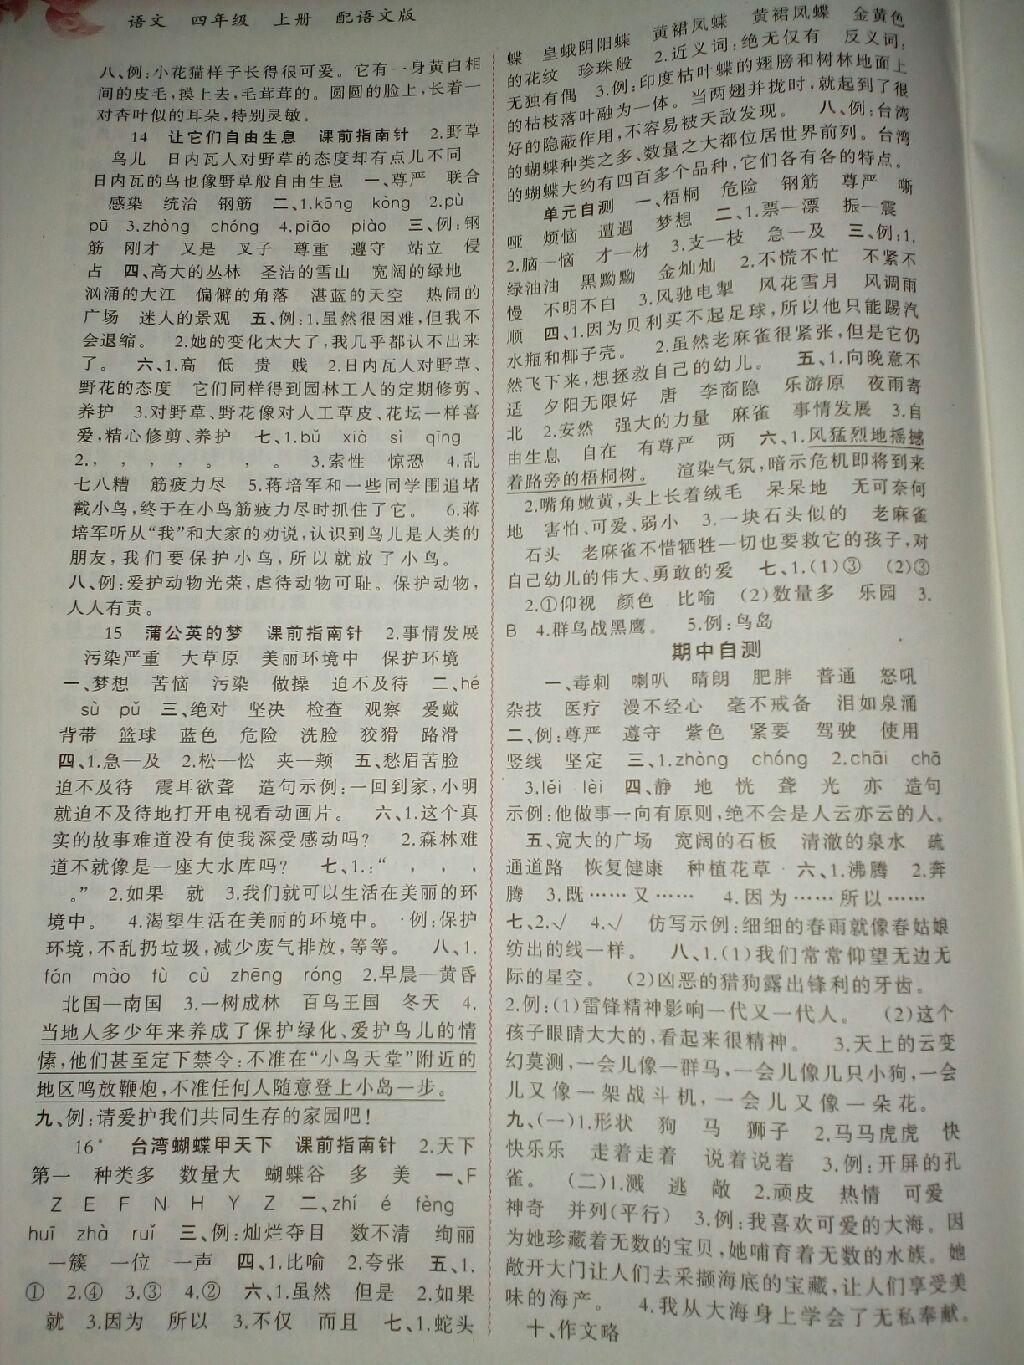 语文 四年级 上册 配语文版
八、例:小花猫样子长得很可爱。它有一身黄白相
间的皮毛,摸上去,毛茸茸的。圆圆的脸上,长着一
对杏叶似的耳朵,特别灵敏。
14 让它们自由生息 课前指南针 2.野草
鸟儿 日内瓦人对野草的态度却有点儿不同
日内瓦的鸟也像野草般自由生息 一、尊严 联合
感染 统治 钢筋 二、1.kōng kòng 2.pù
pū 3.zhòng chóng 4.piāo piào 三、例:钢
筋 刚才 又是 叉子 尊重 遵守 站立 侵
占 四、高大的丛林 圣洁的雪山 宽阔的绿地
汹涌的大江 偏僻的角落 湛蓝的天空 热闹的
广场 迷人的景观 五、例:1.虽然很困难,但我不
会退缩。 2.她的变化太大了,我几乎都认不出来
了。 六、1.高 低 贵 贱 2.日内瓦人对野草、
野花的态度 它们同样得到园林工人的定期修剪、
养护 3.对野草、野花像对人工草皮、花坛一样喜
爱,精心修剪、养护 七、1.bǔ xià sì qīng
2., , , 。 , 。 3.索性 惊恐 4.乱
七八糟 筋疲力尽 5.蒋培军和一些同学围追堵
截小鸟,终于在小鸟筋疲力尽时抓住了它。 6.蒋
培军听从“我”和大家的劝说,认识到鸟儿是人类的
朋友,我们要保护小鸟,所以就放了小鸟。
八、例:爱护动物光荣,虐待动物可耻。保护动物,
人人有责。
15 蒲公英的梦 课前指南针 2.事情发展
污染严重 大草原 美丽环境中 保护环境
一、梦想 苦恼 污染 做操 迫不及待 二、hé
sù pǔ 三、绝对 坚决 检查 观察 爱戴
背带 篮球 蓝色 危险 洗脸 狡猾 路滑
四、1.急—及 2.松—忪 夹—颊 五、愁眉苦脸
迫不及待 震耳欲聋 造句示例:一回到家,小明
就迫不及待地打开电视看动画片。 六、1.这个真
实的故事难道没有使我深受感动吗? 2.森林难
道不就像是一座大水库吗? 七、1.:“ , , ,
。” 2.如果 就 3.我们就可以生活在美丽的环
境中。 4.渴望生活在美丽的环境中。 例:保护
环境,不乱扔垃圾,减少废气排放,等等。 八、1.
fán mào fù cù zhēng róng 2.早晨—黄昏
北国—南国 3.一树成林 百鸟王国 冬天 4.
当地人多少年来养成了保护绿化、爱护鸟儿的情
愫,他们甚至定下禁令:不准在“小鸟天堂”附近的
地区鸣放鞭炮,不准任何人随意登上小岛一步。
九、例:请爱护我们共同生存的家园吧!
16* 台湾蝴蝶甲天下 课前指南针 2.天下
第一 种类多 数量大 蝴蝶谷 多 美 一、F
Z E F N H Y Z 二、zhí é fèng
huī zhà ruǐ 三、例:灿烂夺目 数不清 绚丽
一簇 一位 一声 四、1.比喻 2.夸张 五、1.
① 2.④ 3.③ 4.② 六、1.虽然 但是 2.如果
就 3.因为 所以 3.不仅 而且 七、1.蛇头
蝶 皇蛾阴阳蝶 黄裙凤蝶 黄裙凤蝶 金黄色
的花纹 珍珠般 2.近义词:绝无仅有 反义词:
无独有偶 3.例:印度枯叶蝶的翅膀和树林地面上
的枯枝落叶融为一体。当两翅并拢时,就起到了很
好的隐蔽作用,不容易被天敌发现。 八、例:台湾
的蝴蝶种类之多、数量之大都位居世界前列。台湾
的蝴蝶大约有四百多个品种,它们各有各的特点。
单元自测 一、梧桐 危险 钢筋 尊严 嘶
哑 烦恼 遭遇 梦想 二、1.票—漂 振—震
2.脑—恼 才—材 3.支—枝 急—及 三、例:1.
绿油油 黑黝黝 金灿灿 2.不慌不忙 不紧不
慢 不明不白 3.风驰电掣 风花雪月 风调雨
顺 四、1.因为贝利买不起足球,所以他只能踢汽
水瓶和椰子壳。 2.虽然老麻雀很紧张,但是它仍
然飞下来,想拯救自己的幼儿。 五、1.向晚意不
适 夕阳无限好 唐 李商隐 乐游原 夜雨寄
北 2.安然 强大的力量 麻雀 事情发展 3.自
由生息 自在 有尊严 两 六、1.风猛烈地摇撼
着路旁的梧桐树。 渲染气氛,暗示危机即将到来
2.嘴角嫩黄,头上长着绒毛 呆呆地 无可奈何
地 害怕、可爱、弱小 3.一块石头似的 老麻雀
石头 老麻雀不惜牺牲一切也要救它的孩子,对
自己幼儿的伟大、勇敢的爱 七、1.(1)③ (2)③
2.①仰视 颜色 比喻 (2)数量多 乐园 3.
B 4.群鸟战黑鹰。 5.例:鸟岛
期中自测
一、毒刺 喇叭 晴朗 肥胖 普通 怒吼
杂技 医疗 漫不经心 毫不戒备 泪如泉涌
二、例:尊严 遵守 紫色 紧要 驾驶 使用
竖线 坚定 三、1.zhòng chóng 2.chāi chā
3.lěi lèi 四、静 地 恍 聋 光 亦 造句
示例:他做事一向有原则,绝不会是人云亦云的人。
五、宽大的广场 宽阔的石板 清澈的泉水 疏
通道路 恢复健康 种植花草 六、1.沸腾 2.奔
腾 3.既……又…… 4.因为……所以……
七、2.√ 4.√ 仿写示例:细细的春雨就像春姑娘
纺出的线一样。 八、1.(1)我们常常仰望无边无
际的星空。 (2)凶恶的猎狗露出锋利的牙齿。
2.例:(1)雷锋精神影响一代又一代人。 (2)这个
孩子眼睛大大的,看起来很精神。 3.天上的云变
幻莫测,一会儿像一群马,一会儿像几只小狗,一会
儿又像一架战斗机,一会儿又像一朵花。
九、(一)1.形状 狗 马 狮子 2.马马虎虎 快
快乐乐 走着走着 说着说着 3.例:开屏的孔
雀。 (二)1.溅 逃 敞 2.顽皮 热情 可爱
神奇 并列(平行) 3.例:我喜欢可爱的大海。因
为她珍藏着无数的宝贝,她哺育着无数的水族。她
敞开大门让人们去采撷海底的宝藏,让人们享受美
味的海产。 4.我从大海身上学会了无私奉献。
十、作文略